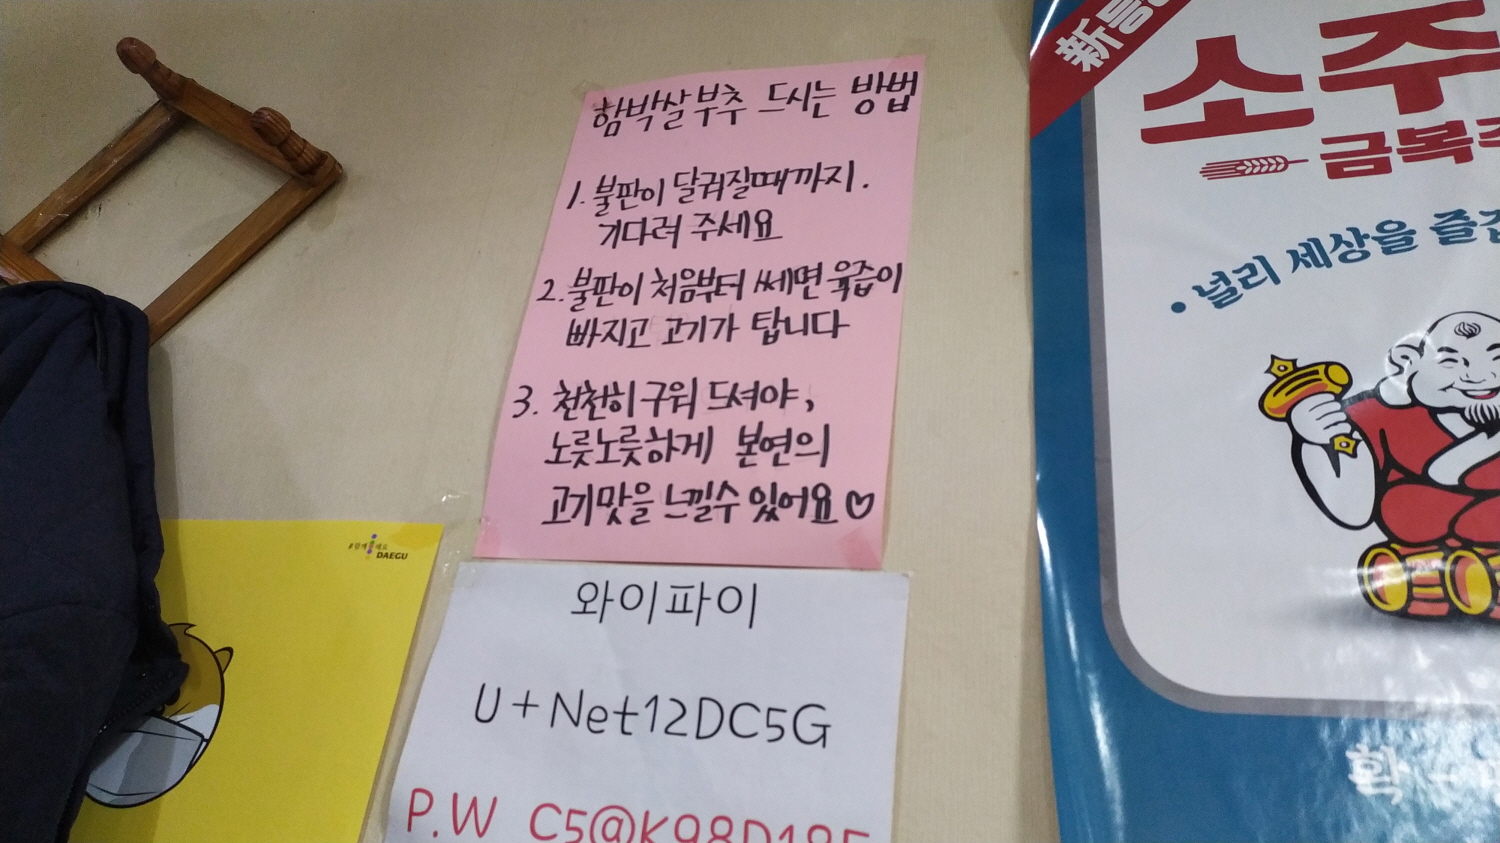 함박살 부추 드시는 방법
1. 불판이 달궈질때까지.
기다려 주세요
2. 불판이 처음부터 쎄면 육즙이
빠지고 고기가 탑니다
3. 천천히 구워 드셔야,
노릇노릇하게 본연의
고기맛을 느낄수 있어요 ♡
와이파이
U+Net12DC5G
P.W
DAEGU
新
소주
금복주
• 널리 세상을